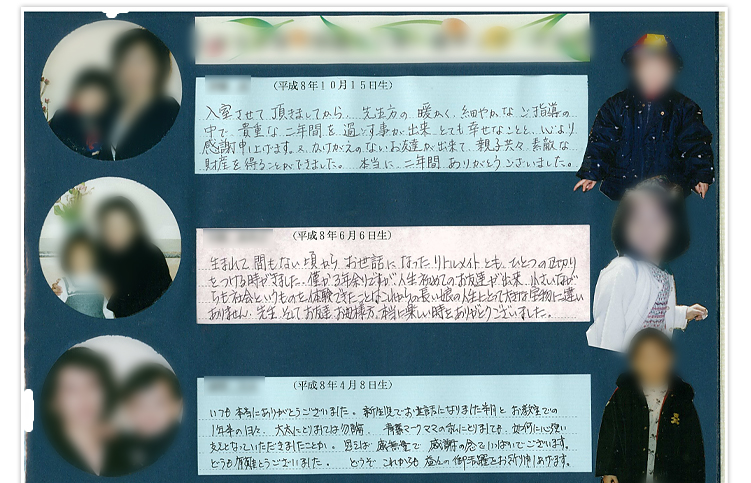 （平成８年１０月１５日生）
入室させて頂きましてから、先生方の暖かく、細やかなご指導の
中で、貴重な二年間を過ごす事が出来、とても幸せなことと、心より
感謝申し上げます。又、かけがえのないお友達が出来て、親子共々素敵な
財産を得ることができました。本当に二年間ありがとうございました。
（平成８年６月６日生）
生まれて間もない頃からお世話になったリトルメイトとも、ひとつの区切り
をつける時がきました。僅か3年余りですが、人生初めてのお友達が出来、小さいなが
らも社会というものを体験できたことはこれからの長い娘の人生にとって大きな宝物に違い
ありません。先生、そしてお友達、お母様方、本当に楽しい時をありがとうございました。
（平成８年４月８日生）
いつも本当にありがとうございました。新生児でお世話になりました半月と お教室での
1年半の日々、太太にとりましては勿論、若葉マークママの私にとりましても、如何に心強い
支えとなっていただきましたことか。思えば 感無量で 感謝の念でいっぱいでございます。
どうも有難とうございました。 どうぞ これからも 益々の御活躍をお祈り申しあげます。